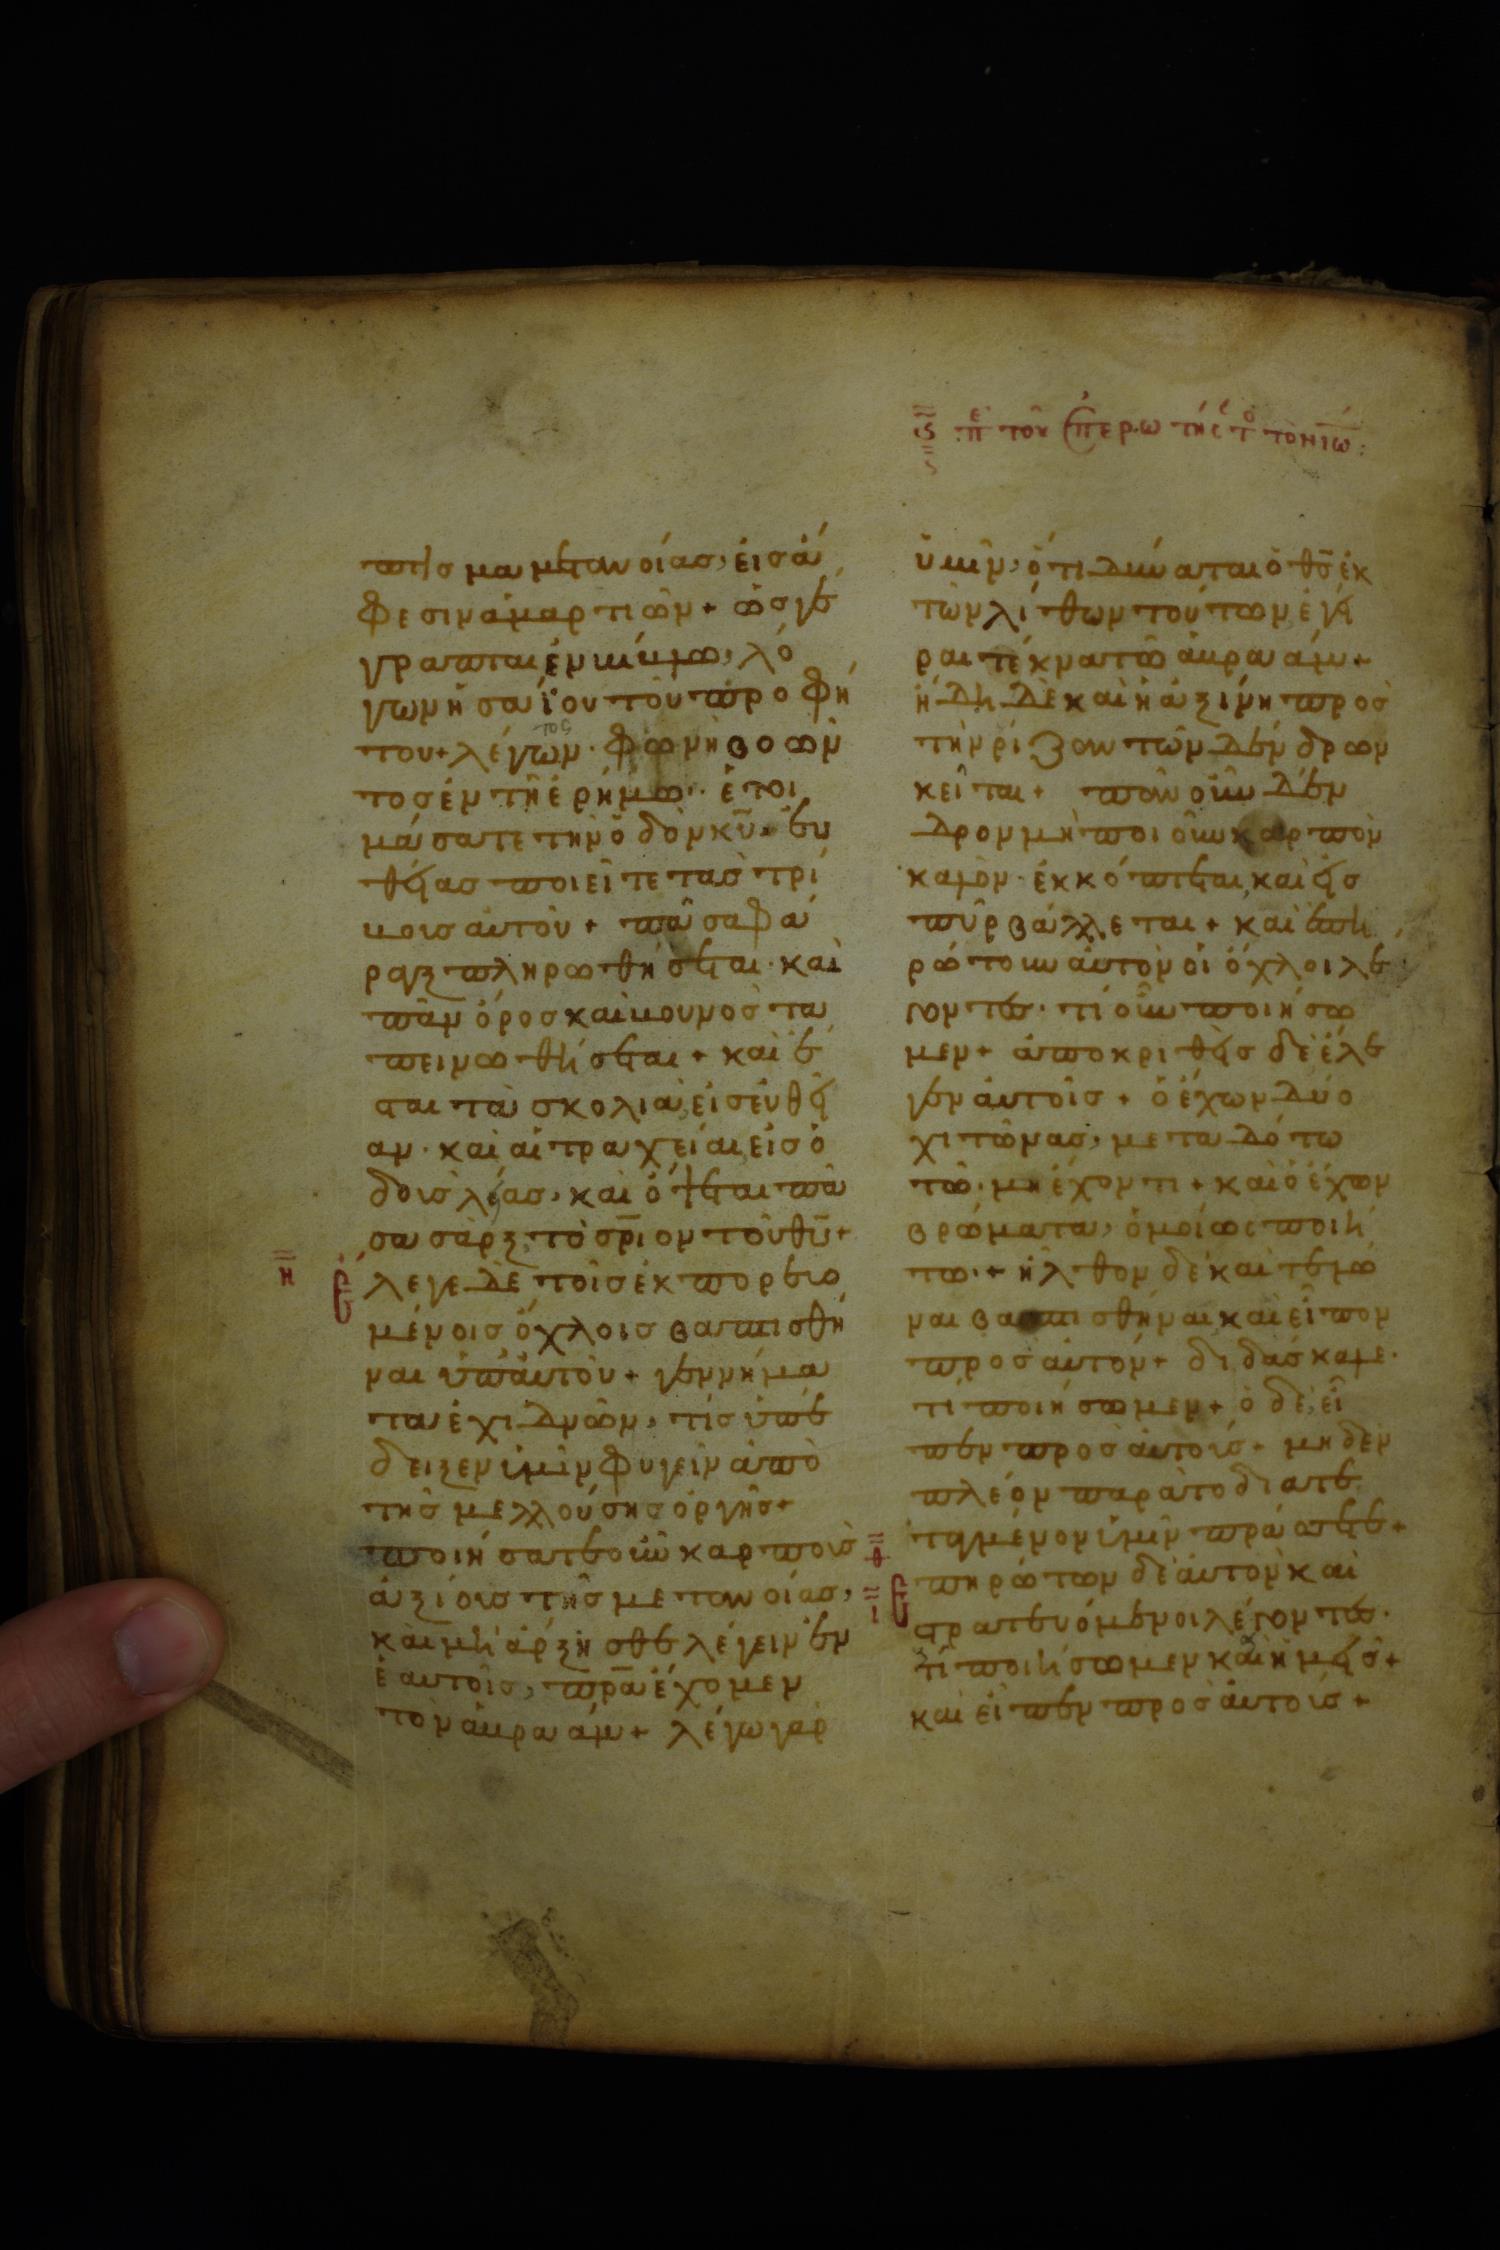 ϛ πε τῶν ἐπερωτησ τ τὸν ιω:
ϛ
πτισμα μετανοίας, εἰς ἄ
φεσιν ἁμαρτιῶν + ὡς γέ
γραπται ἐν βίβλω, λό
γων ἠσαΐου τοῦ προφή
του + λέγων · φωνὴ βοῶν
τος ἐν τῆ ἐρήμω · ἑτοι
μάσατε τὴν ὁδὸν κ̅υ̅, εὐ
θείας ποιεῖτε τὰς τρί
βους αὐτοῦ + πᾶσα φά
ραγξ πληρωθήσεται · καὶ
πᾶν ὄρος καὶ βουνὸς τα
πεινωθήσεται + καὶ ἔ
σται τὰ σκολιὰ εἰς εὐθεῖ
αν · καὶ αἱ τραχεῖαι εἰς ὁ
δοὺς λείας · καὶ ὄψεται πᾶ
σα σὰρξ τὸ σ̅ρ̅ιον τοῦ θ̅υ̅ +
η ἔλεγε δὲ τοῖς ἐκπορευο
μένοις ὄχλοις βαπτισθῆ
ναι ὑπ' αὐτοῦ + γεννήμα
τα ἐχιδνῶν, τίς ὑπέ
δειξεν ὑμῖν φυγεῖν ἀπὸ
τῆς μελλούσης ὀργῆς +
ποιήσατε οὖν καρποὺς
ἀξίους τῆς μετανοίας,
καὶ μὴ ἄρξησθε λέγειν ἐν
ἑαυτοῖς, π̅ρ̅α ἔχομεν
τὸν ἀβραάμ + λέγω γὰρ
ὑμῖν, ὅτι δύναται ὁ θ̅ς̅ ἐκ
τῶν λίθων τούτων ἐγεῖ
ραι τέκνα τῶ ἀβραάμ +
ἤδη δὲ καὶ ἡ ἀξίνη πρὸς
τὴν ρίζαν τῶν δένδρων
κεῖται + πᾶν οὖν δέν
δρον μὴ ποιοῦν καρπὸν
καλὸν · ἐκκόπτεται, καὶ εἰς
πῦρ βάλλεται + καὶ ἐπη
ρώτουν αὐτὸν οἱ ὄχλοι λέ
γοντες · τί οὖν ποιήσω
μεν + ἀποκριθεὶς δὲ ἔλε
γεν αὐτοῖς + ὁ ἔχων δύο
χιτῶνας, μεταδότω
τῶ · μὴ ἔχοντι + καὶ ὁ ἔχων
βρώματα, ὁμοίως ποιεί
τω · + ἦλθον δὲ καὶ τελῶ
ναι βαπτισθῆναι καὶ εἶπον
πρὸς αὐτόν + διδάσκαλε ·
τί ποιήσωμεν + ὁ δὲ εἶ
πεν πρὸς αὐτούς + μηδὲν
πλέον παρὰ τὸ διατε
θ ταγμένον ὑμῖν πράσσετε +
ι ἐπηρώτων δὲ αὐτὸν καὶ
στρατευόμενοι λέγοντες ·
τί ποιήσωμεν καὶ ἡμεῖς +
καὶ εἶπεν πρὸς αὐτούς +